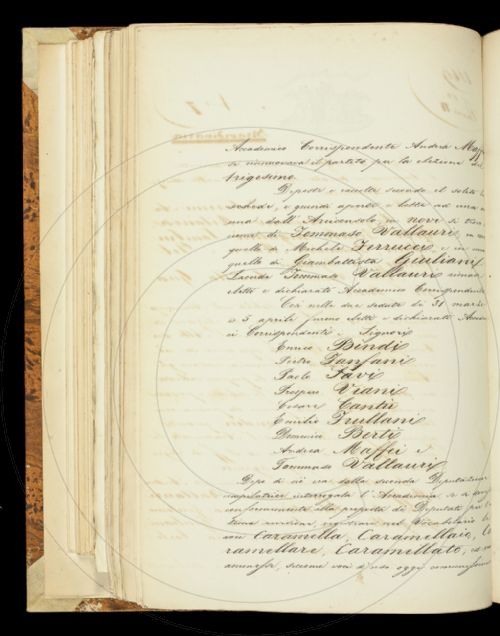 Accademico Corrispondente Andrea Maffei
si rinnovava il partito per la elezione del
trigesimo.
Deposte e raccolte secondo il solito le
schede, e quindi aperte e lette ad una a
una dall' Arciconsolo, in novi si trov
nome di Tommaso Vallauri, in
quella di Michele Ferrucci e in una
quella di Giambattista Giuliani
Laonde Tommaso Vallauri rimane
eletto e dichiarato Accademico Corrispondente
Così nelle due sedute de' 31 marzo
e 5 aprile furono eletti e dichiarati Accade
ci Corrispondenti i Signori
Enrico Bindi
Pietro Fanfani
Paolo Savi
Prospero Viani
Cesare Cantù
Emilio Frullani
Domenico Berti
Andrea Maffei e
Tommaso Vallauri
Dopo di ciò venne dalla seconda Deputazione
compilatrice interrogata l' Accademia se a
conformemente alla proposta di Deputati
registrare nel Vocabolario le
voci Caramella, Caramellaio, Ca
ramellare, Caramellato,
ammesse, siccome voci d' uso oggi comunissimo